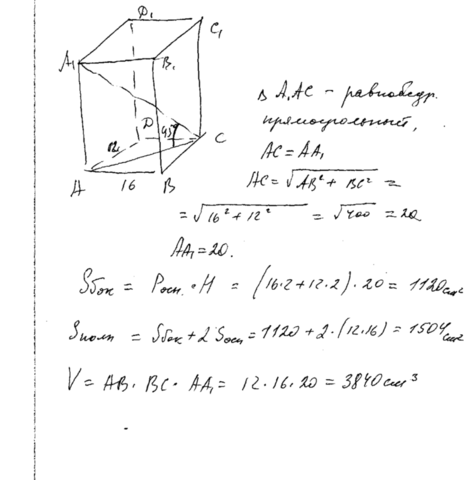 D₁
C₁
A₁
B₁
D 45°
C
12
A
16
B
△ A₁AC – равнобедр.
прямоугольный,
AC = AA₁
AC = √AB² + BC² =
= √16² + 12² = √400 = 20
AA₁ = 20.
Sбок = Pосн. · H = (16·2 + 12·2) · 20 = 1120 см²
Sполн = Sбок + 2 Sосн = 1120 + 2 · (12·16) = 1504 см²
V = AB · BC · AA₁ = 12 · 16 · 20 = 3840 см³